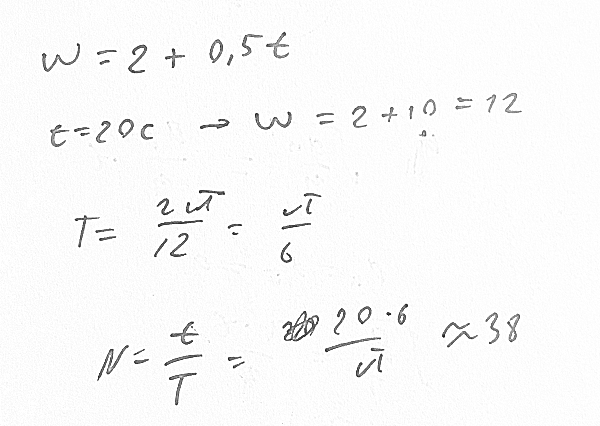 w = 2 + 0,5t
t=20c → w = 2+10 = 12
T = 2π/12 = π/6
N = t/T = 20·6/π ≈38